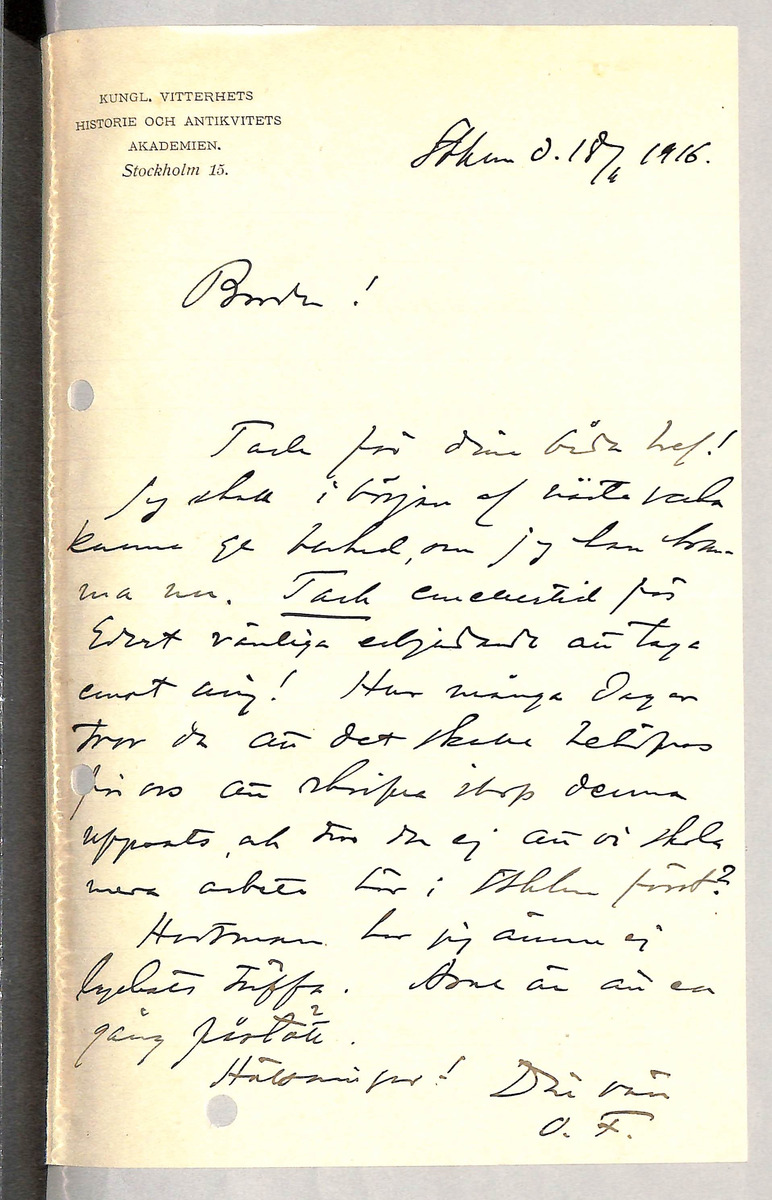 KUNGL. VITTERHETS
HISTORIE OCH ANTIKVITETS
AKADEMIEN.
Stockholm 15.
Sthlm d. 18/6 1916.
Broder!
Tack för dina båda bref!
Jag skall i början af nästa vecka
kunna ge besked, om jag kan kom-
ma nu. Tack emellertid för
Edert vänliga erbjudande att taga
emot mig! Hur många dagar
tror du att det skulle behöfvas
för oss att skrifva ihop denna
uppsats, och tror du ej att vi skola
mera arbeta här i Sthlm först?
Hartman har jag ännu ej
lyckats träffa. Arne är åter en
gång förlofvad.
Hälsningar! Din vän
O. F.